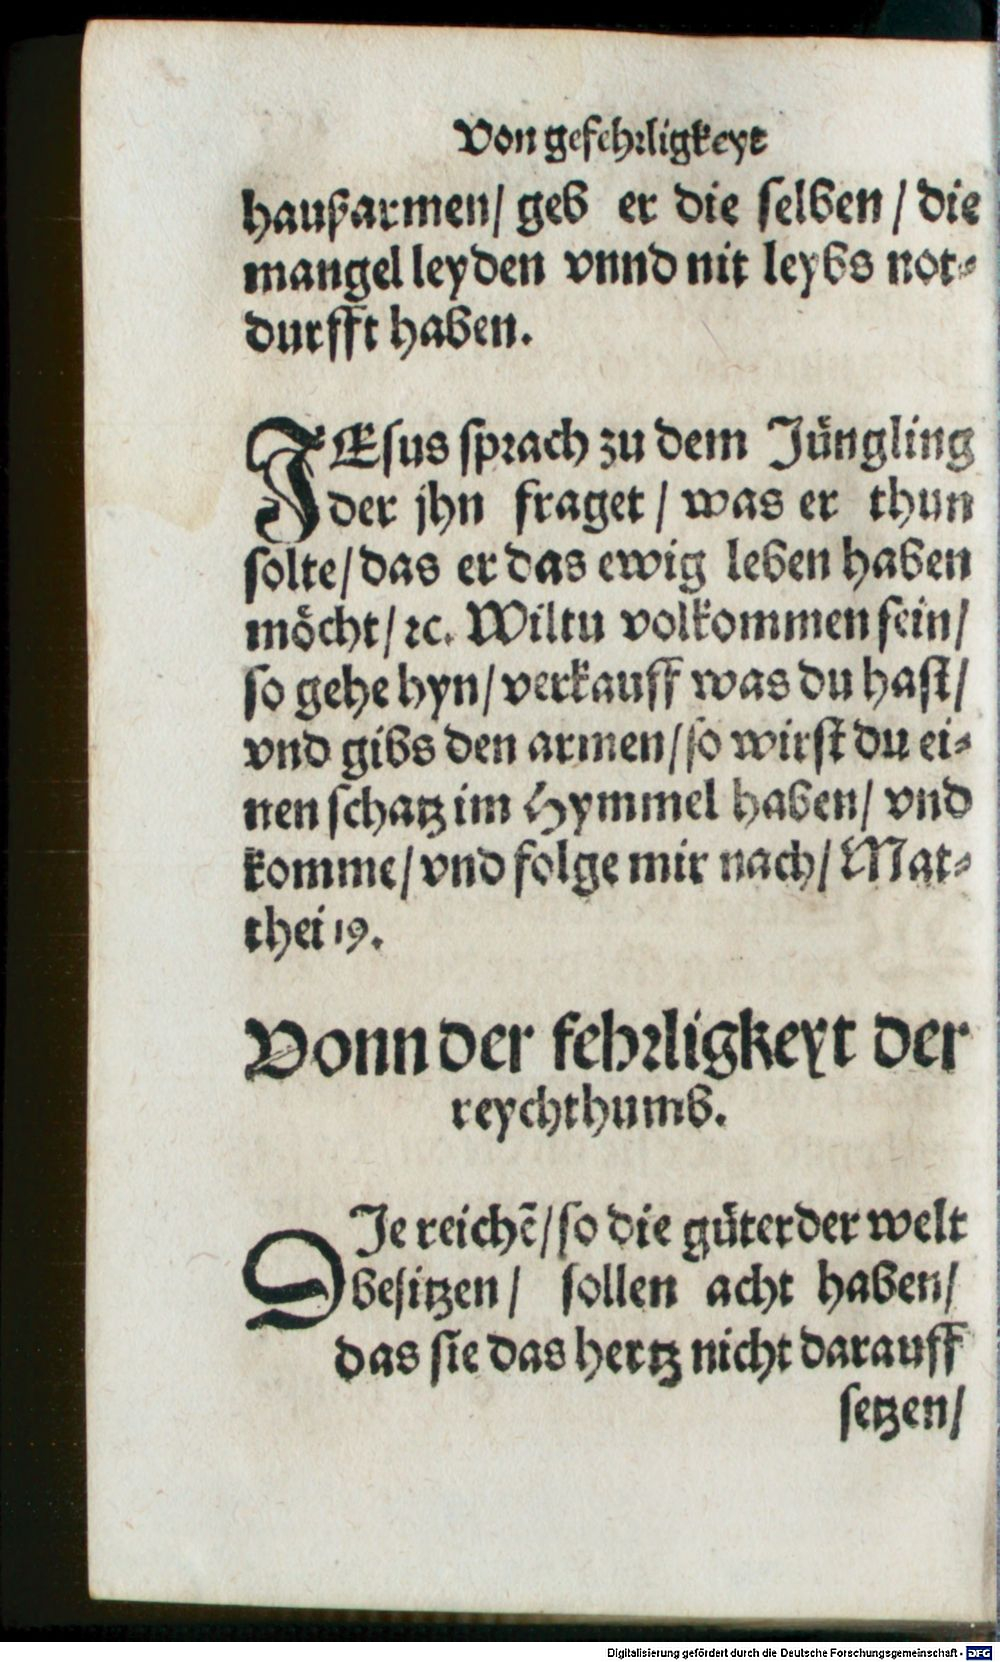 Von gefehrligkeyt
haußarmen/ geb er die selben / die
mangel leyden vnnd nit leybs not⸗
durfft haben.
JEsus sprach zu dem Jüngling
der jhn fraget / was er thun
solte/ das er das ewig leben haben
möcht/ ꝛc. Wiltu volkommen sein/
so gehe hyn/ verkauff was du hast/
vnd gibs den armen/ so wirst du ei⸗
nen schatz im Hymmel haben/ vnd
komme/ vnd folge mir nach/ Mat⸗
thei 19.
Vonn der fehrligkeyt der
reychthumb.
DJe reichẽ/ so die güter der welt
besitzen / sollen acht haben/
das sie das hertz nicht darauff
setzen/
Digitalisierung gefördert durch die Deutsche Forschungsgemeinschaft - DFG